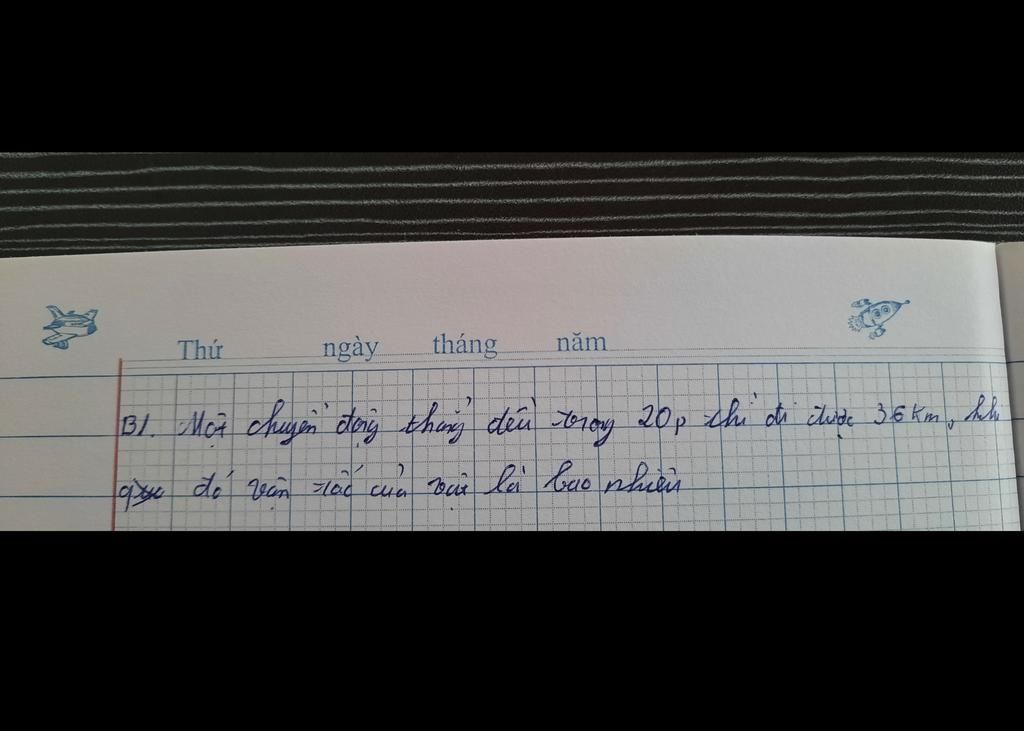 Thứ ngày tháng năm
B1. Một chuyển động thẳng đều trong 20p thì đi được 36 km, khi
đó vận tốc của vật là bao nhiêu